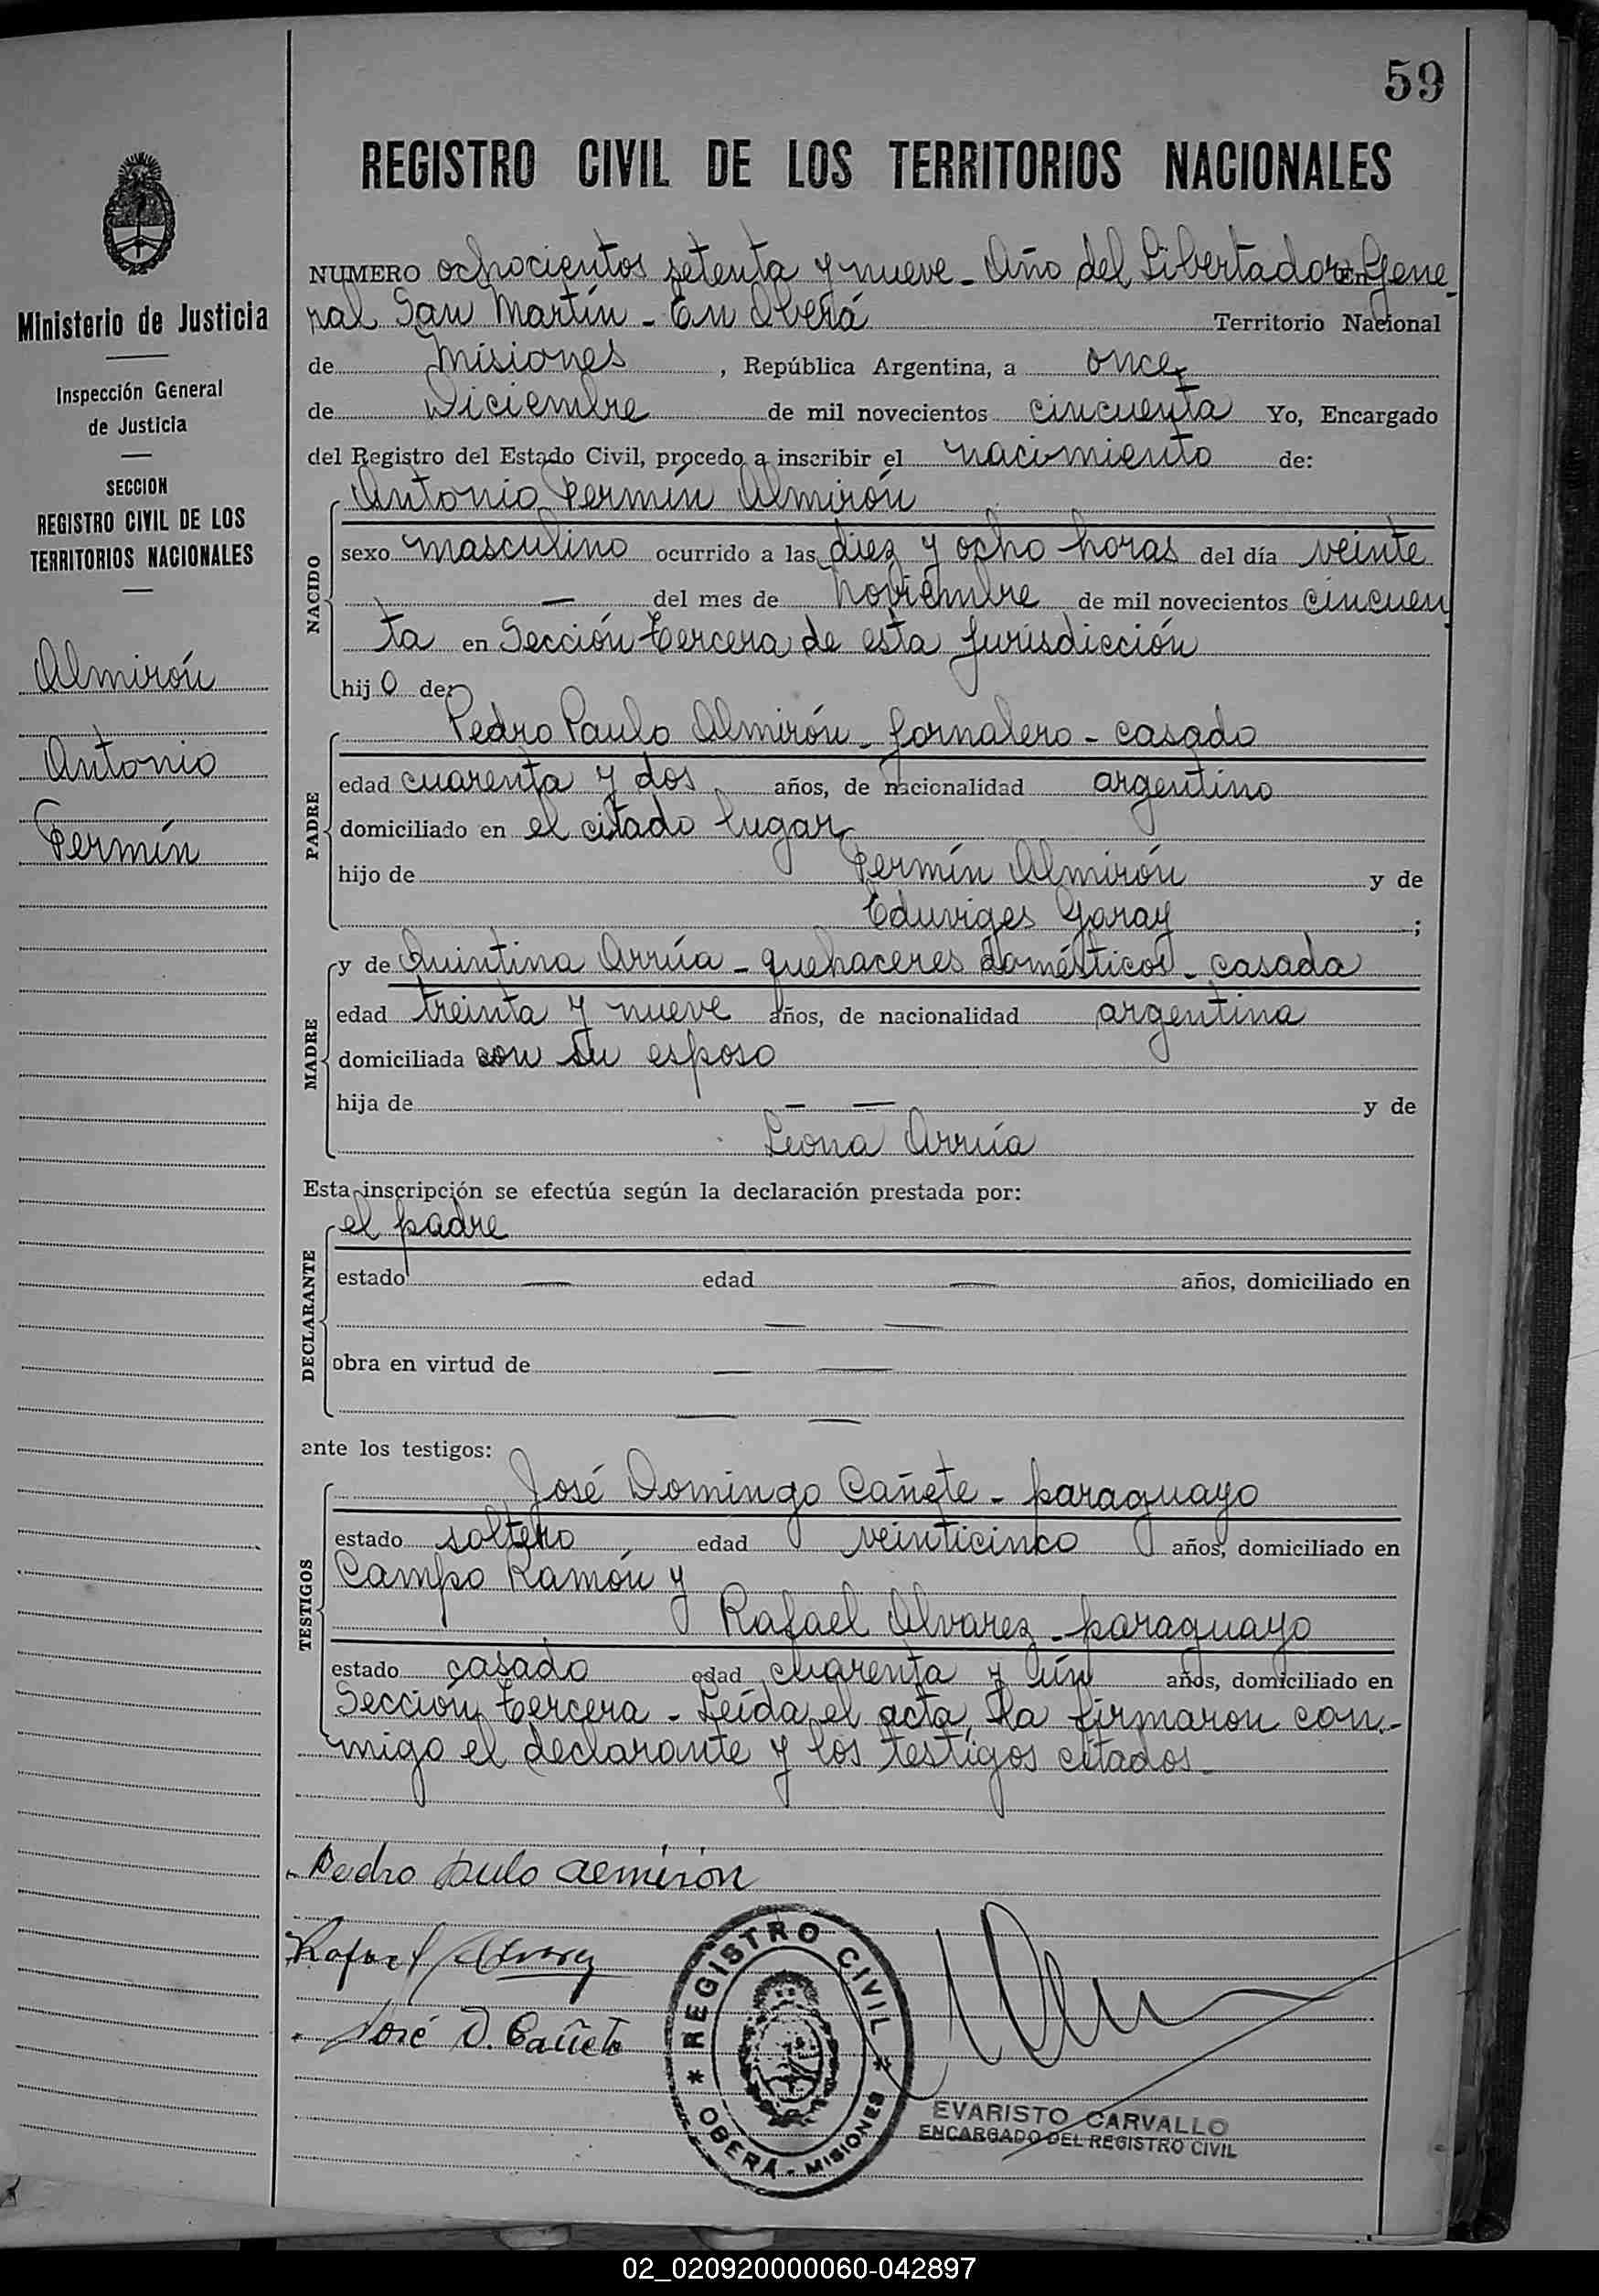 59
REGISTRO CIVIL DE LOS TERRITORIOS NACIONALES
NUMERO ochocientos setenta y nueve - Año del Libertador En Gene-
ral San Martín - En Oberá Territorio Nacional
de Misiones, República Argentina, a once
de Diciembre de mil novecientos cincuenta Yo, Encargado
del Registro del Estado Civil, procedo a inscribir el nacimiento de:
Antonio Fermín Almirón
NACIDO
sexo masculino ocurrido a las diez y ocho horas del día veinte
— del mes de noviembre de mil novecientos cincuen
ta en Sección tercera de esta jurisdicción
hijo de:
Pedro Paulo Almirón - jornalero - casado
PADRE
edad cuarenta y dos años, de nacionalidad argentino
domiciliado en el citado lugar
hijo de Fermín Almirón y de
Eduviges Garay ;
y de Quintina Arrúa - quehaceres domésticos - casada
MADRE
edad treinta y nueve años, de nacionalidad argentina
domiciliada con su esposo
hija de — — y de
Leona Arrúa
Esta inscripción se efectúa según la declaración prestada por:
el padre
DECLARANTE
estado — edad — años, domiciliado en
— —
obra en virtud de — —
— —
ante los testigos:
José Domingo Cañete - paraguayo
TESTIGOS
estado soltero edad veinticinco años, domiciliado en
Campo Ramón y
Rafael Alvarez - paraguayo
estado casado edad cuarenta y ún años, domiciliado en
Sección tercera - Leída el acta, la firmaron con-
migo el declarante y los testigos citados -
Pedro paulo almiron
Rafael Alvarez
José D. Cañete
REGISTRO CIVIL
* OBERÁ - MISIONES *
EVARISTO CARVALLO
ENCARGADO DEL REGISTRO CIVIL
Ministerio de Justicia
Inspección General
de Justicia
SECCION
REGISTRO CIVIL DE LOS
TERRITORIOS NACIONALES
Almirón
Antonio
Fermín
02_020920000060-042897